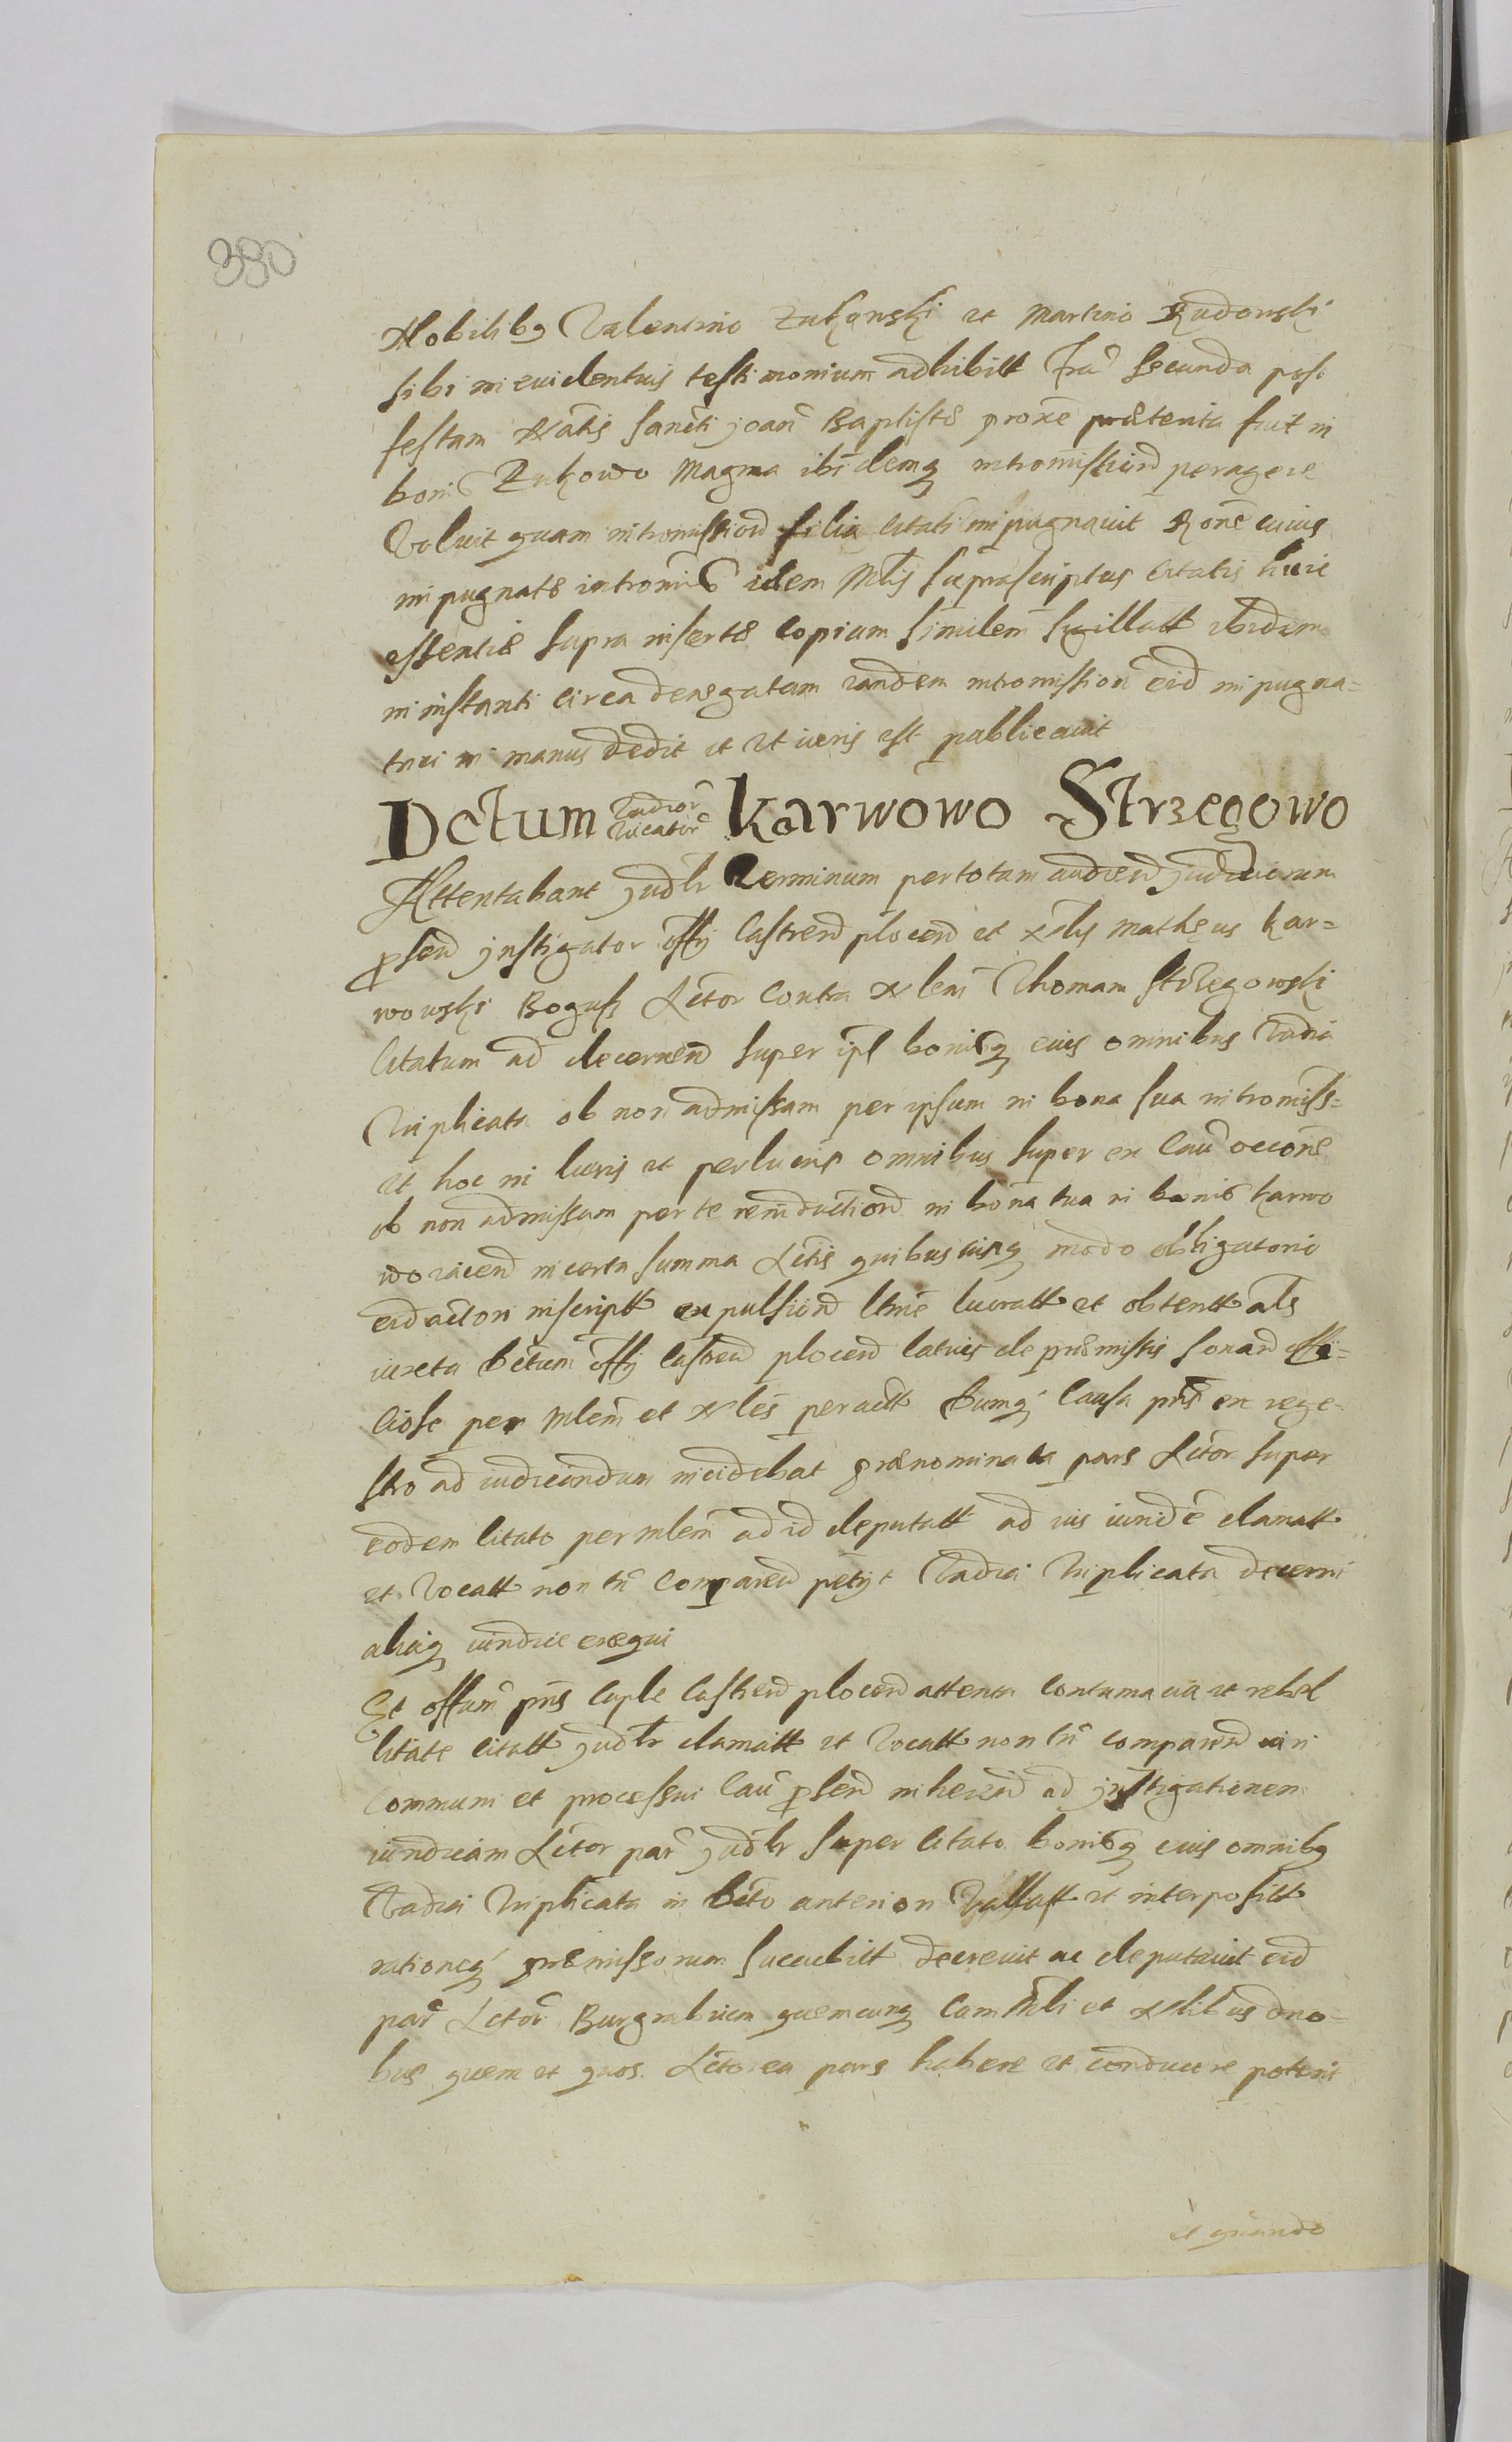 380
Nobilibq Valentino Zukowski et Martino Rudowski
sibi in euidentius testimonium adhibitt fra secunda post
festum Natis Sancti Joan Baptistæ proxe præterita fuit in
bonis Zukowo Magna ibidemq intromissiond peragere
Voluit quam intromissiond filia Citati inpugnauit Rone cuius
inpugnatæ intromis idem Mlis supra scriptus Citatis huic
essentiæ supra insertæ Copiam similem sigillatt ibidem
in instanti circa denegatam eandem intromission eid inpugna=
trici in manus dedit et ut iuris est publicauit
Dctum Vadior triicator Karwowo Strzegowo
Attentabant Judlr Terminum per totam audiend Judiciorum
psen Instigator offy Castrend plocend et Nlis Matheus Kar=
wowski Boguss Actor Contra Nlem Thomam Strzegowski
Citatum ad decernend super ips bonisq eius omnibus Vadia
Triplicata ob non admissam per ipsum in bona sua intromiss=
et hoc in lucris et perlucris omnibus super ex Cau occone
ob non admissam per te reinductiond in bona tua in bonis Karwo
wo iacend in certa summa Actis quibusuisq modo obligatorio
eid actori inscriptt expulsiond ltme lucratt et obtentt als
iuxta Dctum offy Castrend plocend latius de præmissis sonand offi=
ciose per Mlem et Nles peractt Dumq Causa pns ex rege=
stro ad iudicandum incidebat prænominata pars Actor super
eodem Citato per mlem ad id deputatt ad ius iuridce clamatt
et Vocatt non tn Comparend petyt Vadia Triplicata decerni
aliaq iuridice exequi
Et offum pns Caple Castrend plocend attenta Contumacia et rebel
litate citatt Judlr clamatt et Vocatt non tn comparend iuri
Communi et processui Cau psend inherend ad Instigationem
iuridicam Actor par Judlr super Citato bonisq eius omnibq
Vadia Triplicata in Dcto anteriori Vallatt et interpositt
rationeq præmissorum succubitt decreuit ac deputauit eid
par Actor Burgrabium quemcunq Cum Mli et Nlibus duo=
bus quem et quos Actorea pars habere et conducere poterit
et quando